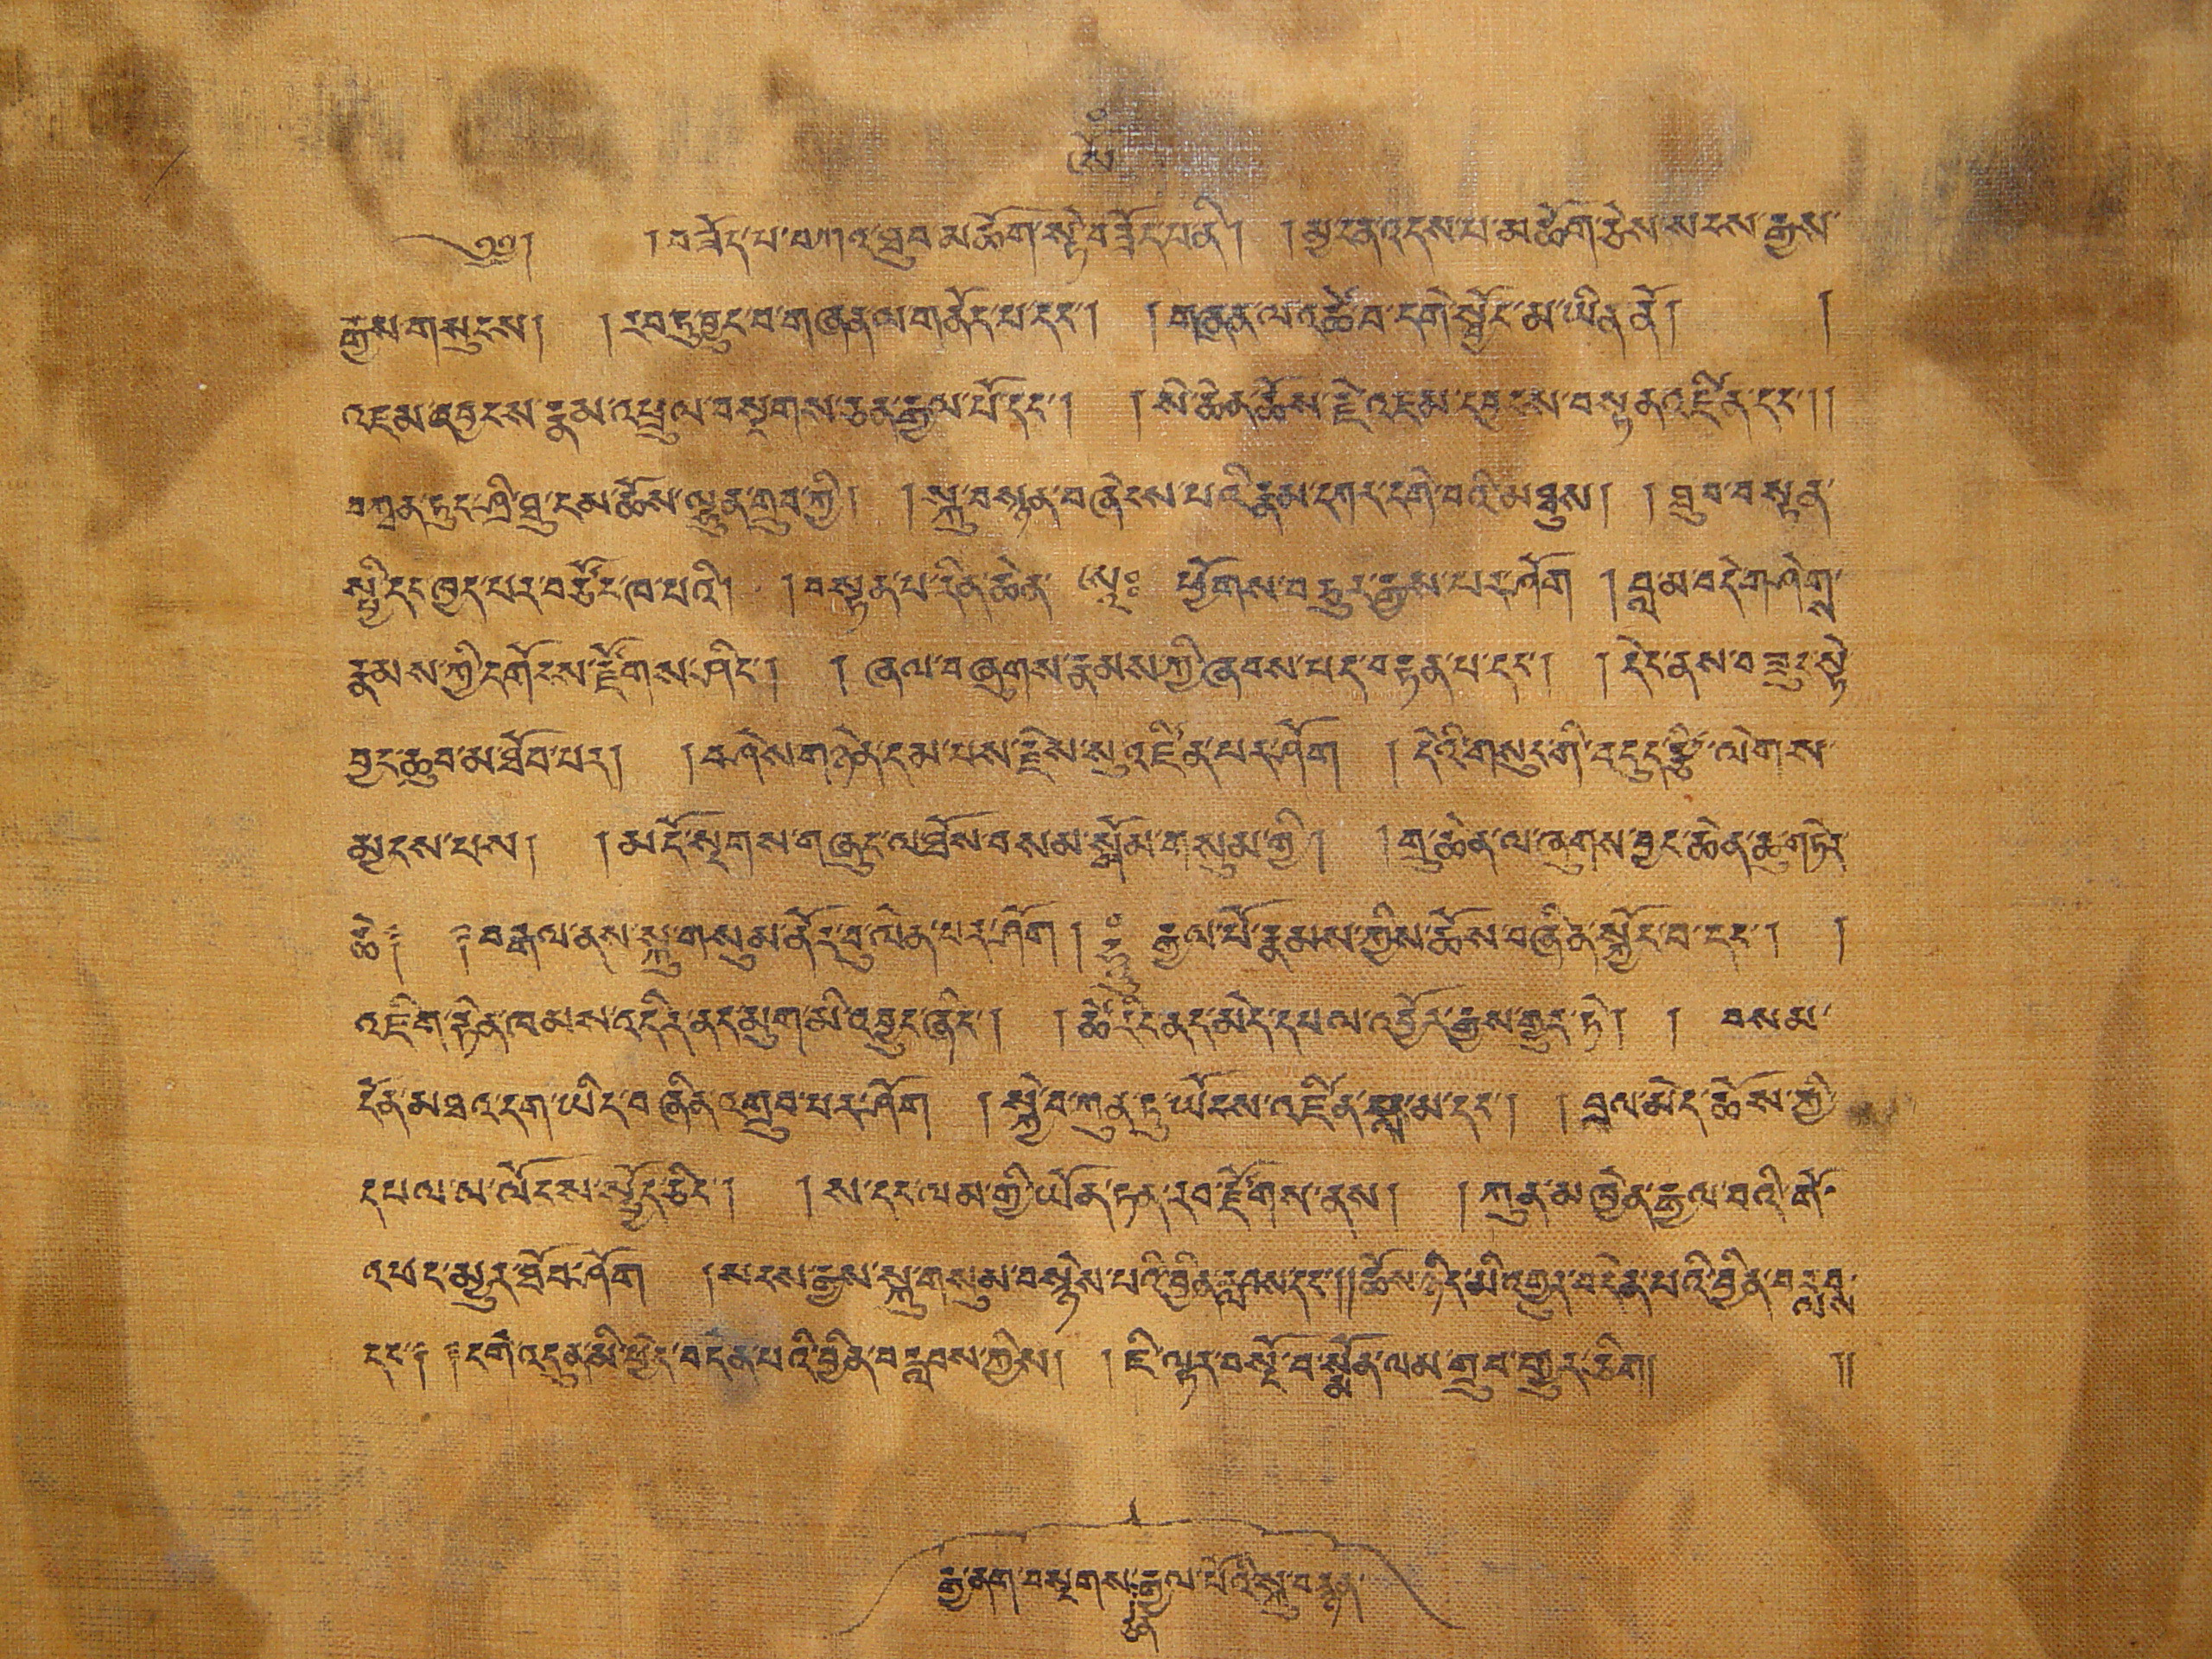 ༀ
༄༅། །བཟོད་པ་བཀའ་ཐུབ་མཆོག་སྟེ་བཟོད་པ་ནི། །མྱ་ངན་འདས་པ་མཆོག་ཅེས་སངས་རྒྱས་
རྒྱས་གསུངས། །རབ་ཏུ་བྱུང་བ་གཞན་ལ་གནོད་པ་དང་། །གཞན་ལ་འཚེ་བ་དགེ་སྦྱོང་མ་ཡིན་ནོ། །
འཇམ་དབྱངས་རྣམ་འཕྲུལ་བསྔགས་ཅན་རྒྱལ་པོ་དང་། །སི་ཆེན་ཆོས་རྗེ་འཇམ་དབྱངས་བསྟན་འཛིན་དང་། །
བཀྲན་ཏུང་ཤྲི་ཐུ་དམ་ཆོས་ལྷུན་གྲུབ་ཀྱི། །སྐུ་བསྟན་བཞེངས་པའི་རྣམ་དཀར་དགེ་བའི་མཐུས། །ཐུབ་བསྟན་
སྤྱི་དང་ཁྱད་པར་བཙོང་ཁ་པའི། །བསྟན་པ་རིན་ཆེན་ ཕྱོགས་བཅུར་རྒྱས་པར་ཤོག །བླ་མ་བདེ་གཤེགས་
རྣམས་ཀྱི་དགོངས་རྫོགས་ཤིང་། །ཞལ་བཞུགས་རྣམས་ཀྱི་ཞབས་པད་བརྟན་པ་དང་། །དེང་ནས་བཟུང་སྟེ་
བྱང་ཆུབ་མ་ཐོབ་པར། །བཤེས་གཉེན་དམ་པས་རྗེས་སུ་འཛིན་པར་ཤོག །དེའི་གསུང་གི་བདུད་རྩི་ལེགས་
མྱངས་པས། །མདོ་སྔགས་གཞུང་ལ་ཐོས་བསམ་སྒོམ་གསུམ་གྱི། །གྲུ་ཆེན་ལ་ཞུགས་བྱང་ཆེན་ཆུ་གཏེར་
ཆེ༔ ༔བརྒལ་ནས་སྐུ་གསུམ་ནོར་བུ་ལེན་པར་ཤོག །རྒྱལ་པོ་རྣམས་ཀྱིས་ཆོས་བཞིན་སྐྱོང་བ་དང་། །
འཇིག་རྟེན་ཁམས་འདིར་ནད་མུག་མི་འབྱུང་ཞིང་། །ཚེ་རིང་ནད་མེད་དཔལ་འབྱོར་རྒྱས་གྱུར་ཏེ། །བསམ་
དོན་མཐའ་དག་ཡིད་བཞིན་འགྲུབ་པར་ཤོག །སྐྱེ་བ་ཀུན་ཏུ་ཡོངས་འཛིན་བླ་མ་དང་། །བྲལ་མེད་ཆོས་ཀྱི་
དཔལ་ལ་ལོངས་སྤྱོད་ཅིང་། །ས་དང་ལམ་གྱི་ཡོན་ཏན་རབ་རྫོགས་ནས། །ཀུན་མཁྱེན་རྒྱལ་བའི་གོ་
འཕང་མྱུར་ཐོབ་ཤོག །སངས་རྒྱས་སྐུ་གསུམ་བསྙེས་པའི་བྱིན་རླབས་དང་། །ཆོས་ཉིད་མི་འགྱུར་བདེན་པའི་བྱིན་བརླབས་
དང་༔ ༔དགེ་འདུན་མི་ཕྱེད་བདེན་པའི་བྱིན་བརླབས་ཀྱིས། །ཇི་ལྟར་བསྔོ་བ་སྨོན་ལམ་གྲུབ་གྱུར་ཅིག །།
རྒྱ་ནག་བསྔགས་རྒྱལ་པོའི་སྐུ་བརྙན་